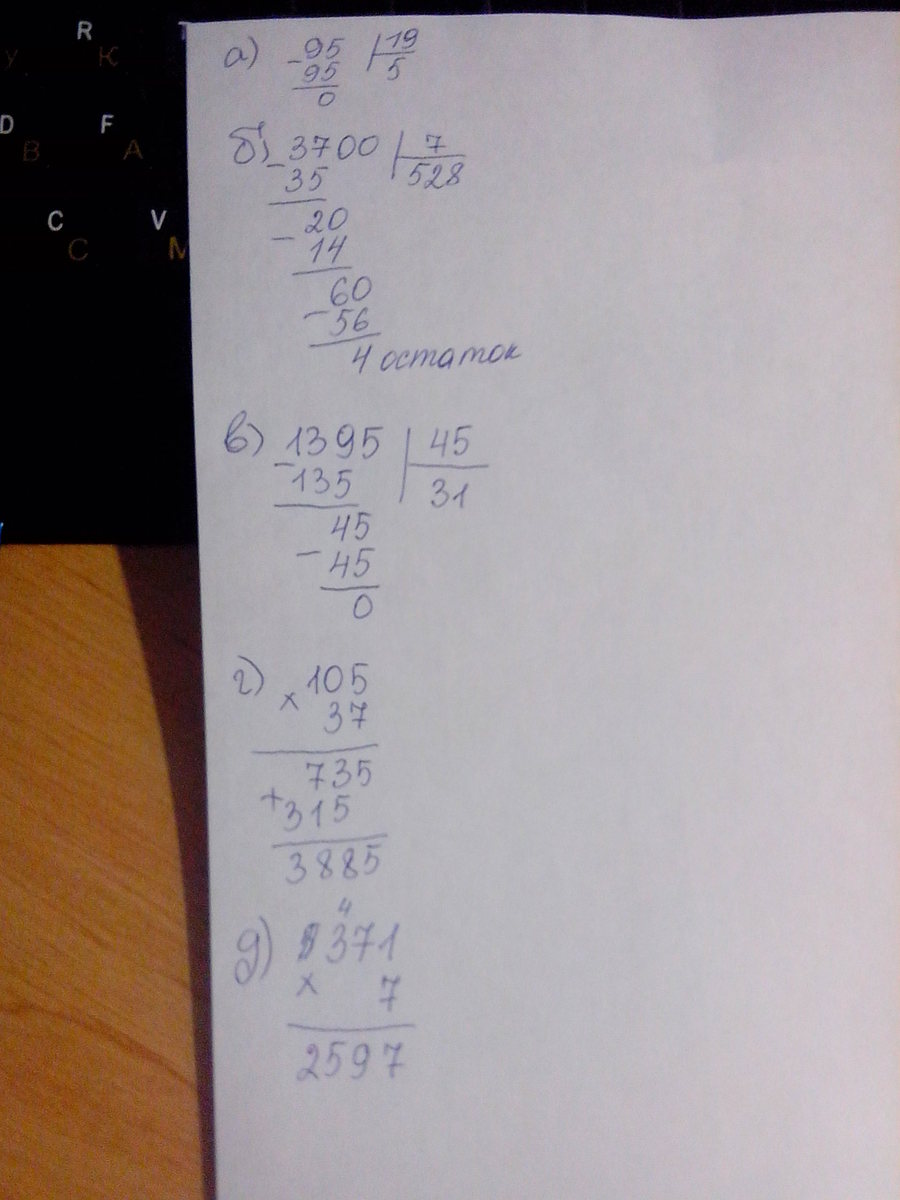 R
У К
D F
В А
C V
С М
а) -95 |19
95 5
0
б) -3700 |7
35 528
20
- 14
60
- 56
4 остаток
в) -1395 |45
135 31
45
- 45
0
г) 105
× 37
735
+315
3885
4
д) 371
× 7
2597